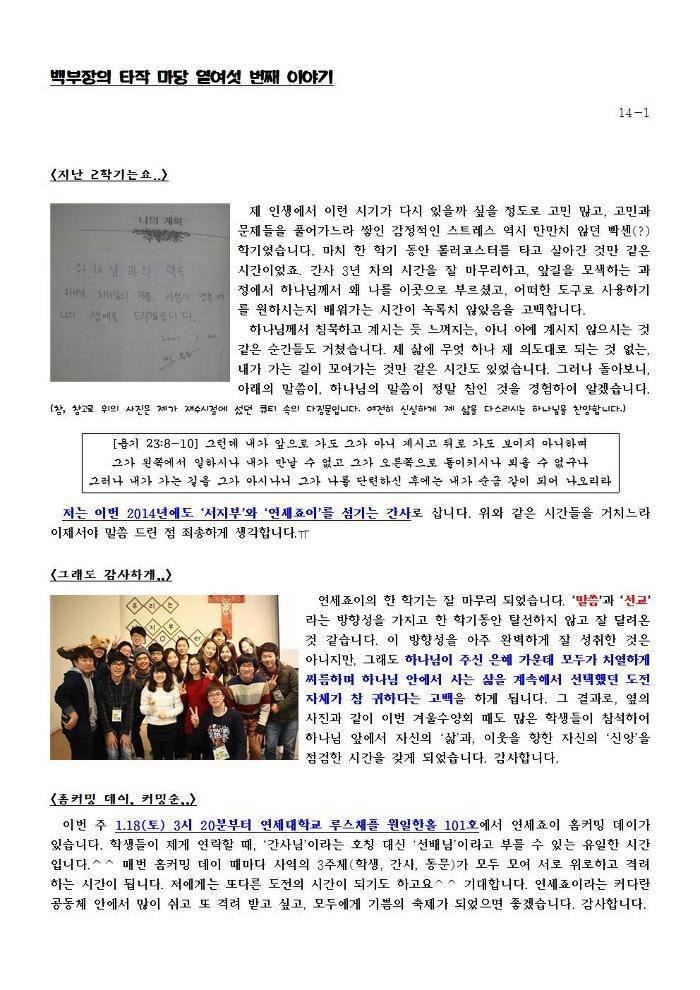 백부장의 타작 마당 열여섯 번째 이야기
14-1
<지난 2학기는요..>
나의 계획
하나님과의 약속
나의 생애를 드리겠습니다.
제 인생에서 이런 시기가 다시 있을까 싶을 정도로 고민 많고, 고민과
문제들을 풀어가느라 쌓인 감정적인 스트레스 역시 만만치 않던 빡센(?)
학기였습니다. 마치 한 학기 동안 롤러코스터를 타고 살아간 것만 같은
시간이었죠. 간사 3년 차의 시간을 잘 마무리하고, 앞길을 모색하는 과
정에서 하나님께서 왜 나를 이곳으로 부르셨고, 어떠한 도구로 사용하기
를 원하시는지 배워가는 시간이 녹록치 않았음을 고백합니다.
하나님께서 침묵하고 계시는 듯 느껴지는, 아니 아예 계시지 않으시는 것
같은 순간들도 거쳤습니다. 제 삶에 무엇 하나 제 의도대로 되는 것 없는,
내가 가는 길이 꼬여가는 것만 같은 시간도 있었습니다. 그러나 돌아보니,
아래의 말씀이, 하나님의 말씀이 정말 참인 것을 경험하여 알겠습니다.
(참, 참고로 위의 사진은 제가 재수시절에 썼던 큐티 속의 다짐문입니다. 여전히 신실하게 제 삶을 다스리시는 하나님을 찬양합니다.)
[욥기 23:8-10] 그런데 내가 앞으로 가도 그가 아니 계시고 뒤로 가도 보이지 아니하며
그가 왼쪽에서 일하시나 내가 만날 수 없고 그가 오른쪽으로 돌이키시나 뵈올 수 없구나
그러나 내가 가는 길을 그가 아시나니 그가 나를 단련하신 후에는 내가 순금 같이 되어 나오리라
저는 이번 2014년에도 '서지부'와 '연세죠이'를 섬기는 간사로 삽니다. 위와 같은 시간들을 거치느라
이제서야 말씀 드린 점 죄송하게 생각합니다.ㅠ
<그래도 감사하게..>
우리는
지 부
er
연세죠이의 한 학기는 잘 마무리 되었습니다. '말씀'과 '선교'
라는 방향성을 가지고 한 학기동안 탈선하지 않고 잘 달려온
것 같습니다. 이 방향성을 아주 완벽하게 잘 성취한 것은
아니지만, 그래도 하나님이 주신 은혜 가운데 모두가 치열하게
씨름하며 하나님 안에서 사는 삶을 계속해서 선택했던 도전
자체가 참 귀하다는 고백을 하게 됩니다. 그 결과로, 옆의
사진과 같이 이번 겨울수양회 때도 많은 학생들이 참석하여
하나님 앞에서 자신의 '삶'과, 이웃을 향한 자신의 '신앙'을
점검한 시간을 갖게 되었습니다. 감사합니다.
<홈커밍 데이, 커밍순,,>
이번 주 1.18(토) 3시 20분부터 연세대학교 루스채플 원일한홀 101호에서 연세죠이 홈커밍 데이가
있습니다. 학생들이 제게 연락할 때, '간사님'이라는 호칭 대신 '선배님'이라고 부를 수 있는 유일한 시간
입니다.^^ 매번 홈커밍 데이 때마다 사역의 3주체(학생, 간사, 동문)가 모두 모여 서로 위로하고 격려
하는 시간이 됩니다. 저에게는 또다른 도전의 시간이 되기도 하고요^^ 기대합니다. 연세죠이라는 커다란
공동체 안에서 많이 쉬고 또 격려 받고 싶고, 모두에게 기쁨의 축제가 되었으면 좋겠습니다. 감사합니다.